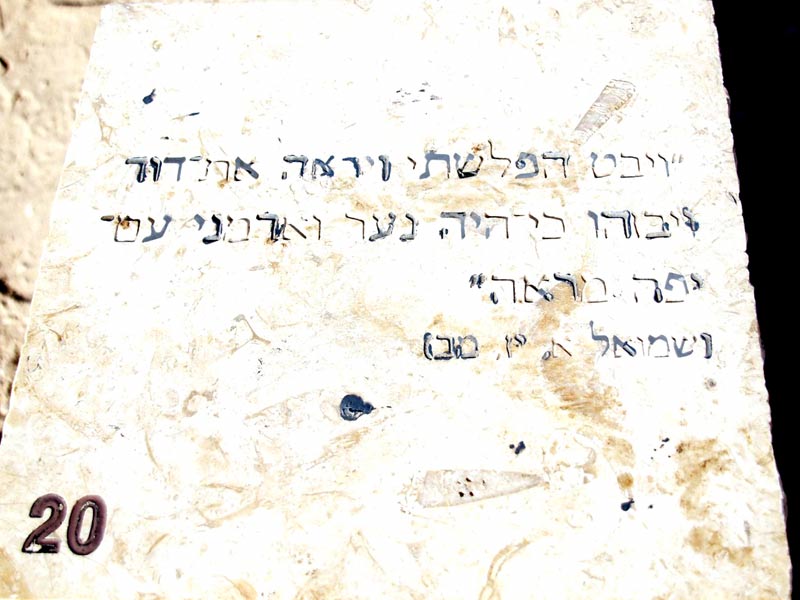 "ויבט הפלשתי ויראה את־דוד
ויבזהו כי־היה נער ואדמני עם־
יפה מראה"
(שמואל א, יז, מב)
20